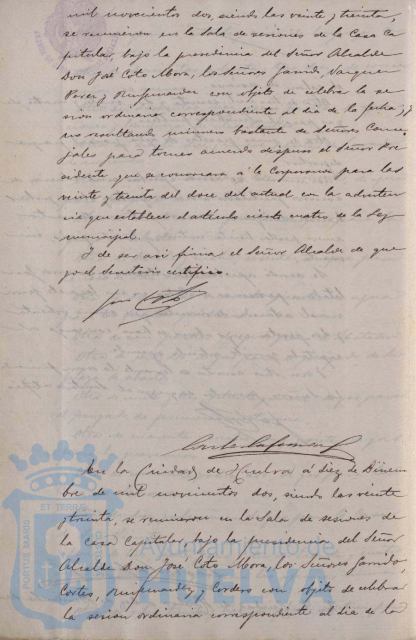 mil novecientos dos, siendo las veinte y treinta,
se reunieron en la Sala de sesiones de la Casa Ca
pitular, bajo la presidencia del Señor Alcalde
Don José Coto Mora, los Señores Garrido, Vazquez
Perez y con objeto de celebrar la se
sion ordinaria correspondiente al dia de la fecha; y
no resultando número bastante de Señores Conce
jales para tomar acuerdo dispuso el Señor Pre
sidente que se convocara a la Corporacion para las
veinte y treinta del doce del actual con la adverten
cia que establece el articulo ciento cuatro de la Ley
municipal.
Y de ser asi firma el Señor Alcalde de que
yo el Secretario certifico.
José Coto
En la Ciudad de Huelva á diez de Diciem
bre de mil novecientos dos, siendo las veinte
y treinta, se reunieron en la Sala de sesiones de
la Casa Capitular, bajo la presidencia del Señor
Alcalde Don José Coto Mora, los Señores Garrido
Cortes, y Cordero con objeto de celebrar
la sesion ordinaria correspondiente al dia de la
Ayuntamiento de
HUELVA
PORTUS MARIS
ET TERRÆ